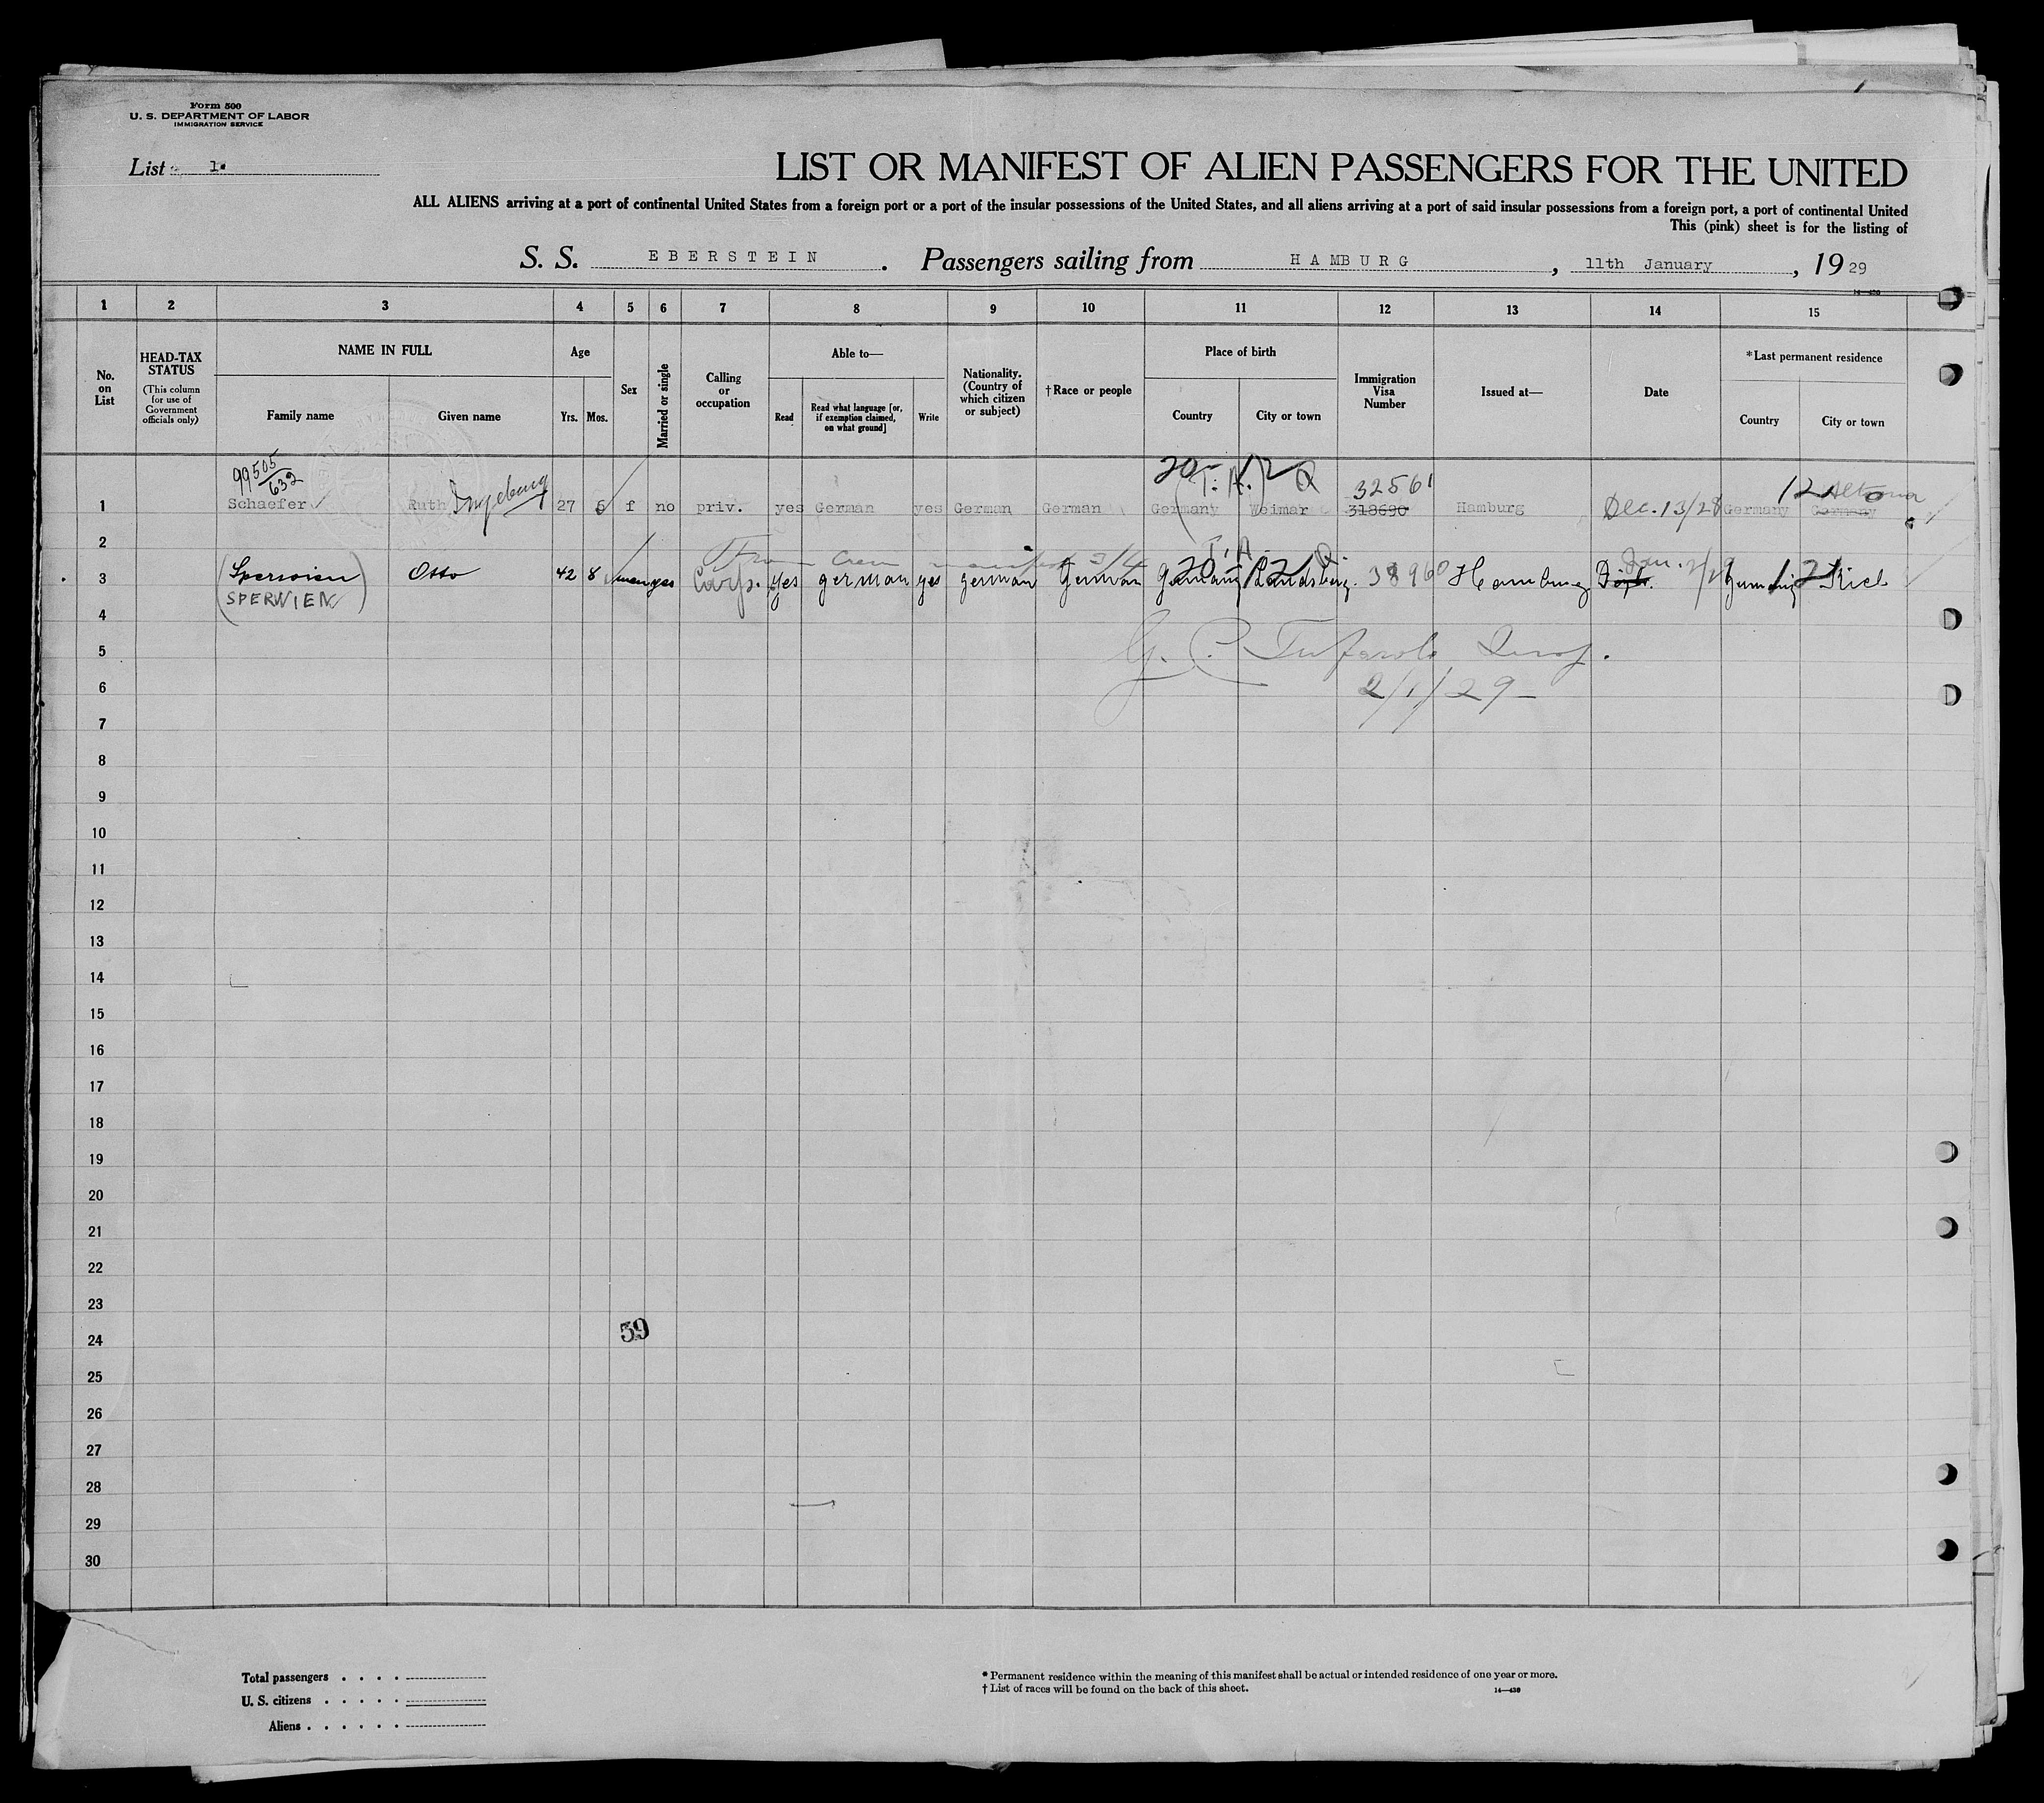 Form 500
U. S. DEPARTMENT OF LABOR
IMMIGRATION SERVICE
List 1.
LIST OR MANIFEST OF ALIEN PASSENGERS FOR THE UNITED
ALL ALIENS arriving at a port of continental United States from a foreign port or a port of the insular possessions of the United States, and all aliens arriving at a port of said insular possessions from a foreign port, a port of continental United
This (pink) sheet is for the listing of
S. S. EBERSTEIN. Passengers sailing from HAMBURG, 11th January, 1929
1 2 3 4 5 6 7 8 9 10 11 12 13 14 15
No. on List
HEAD-TAX STATUS (This column for use of Government officials only)
NAME IN FULL
Family name Given name
Age
Yrs. Mos.
Sex
Married or single
Calling or occupation
Able to—
Read
Read what language [or, if exemption claimed, on what ground]
Write
Nationality. (Country of which citizen or subject)
†Race or people
Place of birth
Country City or town
Immigration Visa Number
Issued at—
Date
*Last permanent residence
Country City or town
99505/632 20- 12 Q
(T. A.) 32561 12 Altona
1 Schaefer Ruth Ingeburg 27 6 f no priv. yes German yes German German Germany Weimar 318690 Hamburg Dec. 13/28 Germany Germany
2 From Crew manifest T.A. Q Jan.
3 (Sperwien Otto 42 8 men yes Carp. yes german yes german German Germany 20 12 Landsberg. 38960 Hamburg Germany 12 Kiel
SPERWIEN)
4
5 G. C. Insp.
6 2/1/29
7
8
9
10
11
12
13
14
15
16
17
18
19
20
21
22
23
24 39
25
26
27
28
29
30
Total passengers
U. S. citizens
Aliens
* Permanent residence within the meaning of this manifest shall be actual or intended residence of one year or more.
† List of races will be found on the back of this sheet. 14—430